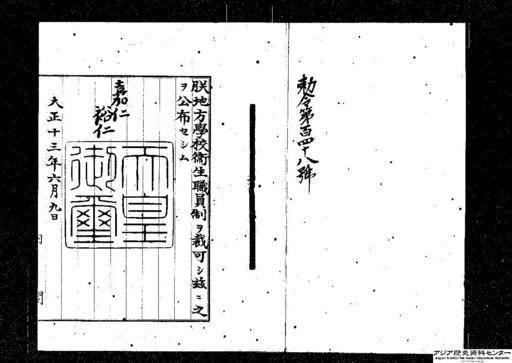 勅令第百四十八號
朕地方學校衞生職員制ヲ裁可シ茲ニ之
ヲ公布セシム
嘉仁
裕仁
天皇
御璽
大正十三年六月九日
内
閣
アジア歴史資料センター
Japan Center for Asian Historical Records